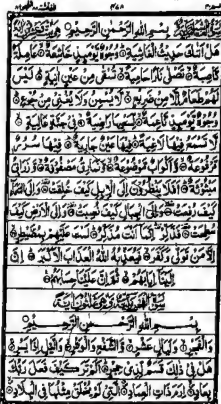 بِسْمِ اللهِ الرَّحْمٰنِ الرَّحِيْمِ
هَلْ اَتٰىكَ حَدِيْثُ الْغَاشِيَةِ وُجُوْهٌ يَّوْمَئِذٍ خَاشِعَةٌ عَامِلَةٌ
نَّاصِبَةٌ تَصْلٰى نَارًا حَامِيَةً تُسْقٰى مِنْ عَيْنٍ اٰنِيَةٍ لَيْسَ
لَهُمْ طَعَامٌ اِلَّا مِنْ ضَرِيْعٍ لَّا يُسْمِنُ وَلَا يُغْنِيْ مِنْ جُوْعٍ
وُجُوْهٌ يَّوْمَئِذٍ نَّاعِمَةٌ لِّسَعْيِهَا رَاضِيَةٌ فِيْ جَنَّةٍ عَالِيَةٍ
لَّا تَسْمَعُ فِيْهَا لَاغِيَةً فِيْهَا عَيْنٌ جَارِيَةٌ فِيْهَا سُرُرٌ
مَّرْفُوْعَةٌ وَّاَكْوَابٌ مَّوْضُوْعَةٌ وَّنَمَارِقُ مَصْفُوْفَةٌ وَّزَرَابِيُّ
مَبْثُوْثَةٌ اَفَلَا يَنْظُرُوْنَ اِلَى الْاِبِلِ كَيْفَ خُلِقَتْ وَاِلَى السَّمَآءِ
كَيْفَ رُفِعَتْ وَاِلَى الْجِبَالِ كَيْفَ نُصِبَتْ وَاِلَى الْاَرْضِ كَيْفَ
سُطِحَتْ فَذَكِّرْ اِنَّمَا اَنْتَ مُذَكِّرٌ لَسْتَ عَلَيْهِمْ بِمُصَيْطِرٍ
اِلَّا مَنْ تَوَلّٰى وَكَفَرَ فَيُعَذِّبُهُ اللهُ الْعَذَابَ الْاَكْبَرَ اِنَّ
اِلَيْنَا اِيَابَهُمْ ثُمَّ اِنَّ عَلَيْنَا حِسَابَهُمْ
بِسْمِ اللهِ الرَّحْمٰنِ الرَّحِيْمِ
وَالْفَجْرِ وَلَيَالٍ عَشْرٍ وَّالشَّفْعِ وَالْوَتْرِ وَالَّيْلِ اِذَا يَسْرِ
هَلْ فِيْ ذٰلِكَ قَسَمٌ لِّذِيْ حِجْرٍ اَلَمْ تَرَ كَيْفَ فَعَلَ رَبُّكَ
بِعَادٍ اِرَمَ ذَاتِ الْعِمَادِ الَّتِيْ لَمْ يُخْلَقْ مِثْلُهَا فِي الْبِلَادِ